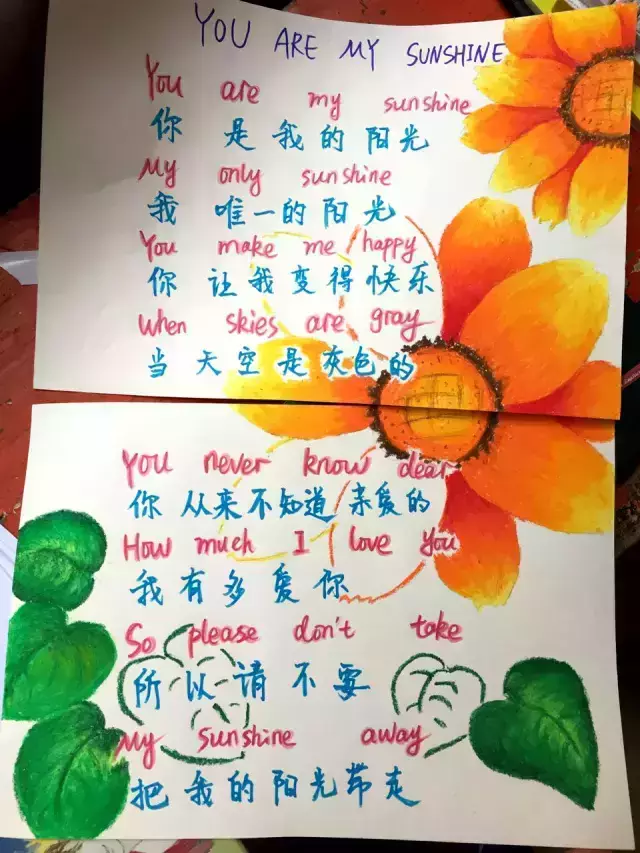 YOU ARE MY SUNSHINE
You are my sunshine
你是我的阳光
My only sunshine
我唯一的阳光
You make me happy
你让我变得快乐
When skies are gray
当天空是灰色的
You never know dear
你从来不知道亲爱的
How much I love you
我有多爱你
So please don't take
所以请不要
My sunshine away
把我的阳光带走